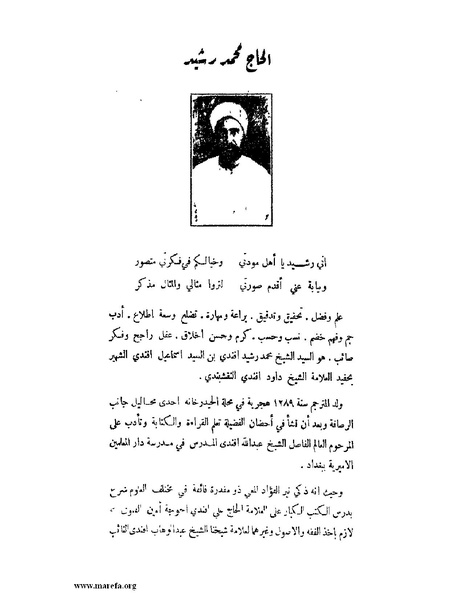 الحاج محمد رشيد
اني رشيد يا أهل مودتي وخيالكم في فكرتي متصور
ونيابة عني أقدم صورتي لتروا مثالي والمثال مذكر
علم وفضل . تحقيق وتدقيق . براعة ومهارة . تضلع وسعة اطلاع . أدب
جم وفهم خضم . نسب وحسب . كرم وحسن أخلاق . عقل راجح وفكر
صائب . هو السيد الشيخ محمد رشيد افندي بن السيد اسماعيل افندي الشهير
بحفيد العلامة الشيخ داود افندي النقشبندي .
ولد المترجم سنة ١٢٨٩ هجرية في محلة الحيدرخانه احدى محاليل جانب
الرصافة وبعد أن نشأ في أحضان الفضيلة تعلم القراءة والكتابة وتأدب على
المرحوم العالم الفاضل الشيخ عبدالله افندى المدرس في مدرسة دار المعلمين
الاميرية ببغداد .
وحيث انه ذكي نير الفؤاد المعي ذو مقدرة فائقة في مختلف العلوم شرع
بدرس الكتب الكبار على العلامة الحاج علي افندي أمين الفتوى
لازم بأخذ الفقه والاصول وغيرهما لعلامة شيخنا الشيخ عبدالوهاب افندى النائب
www.marefa.org